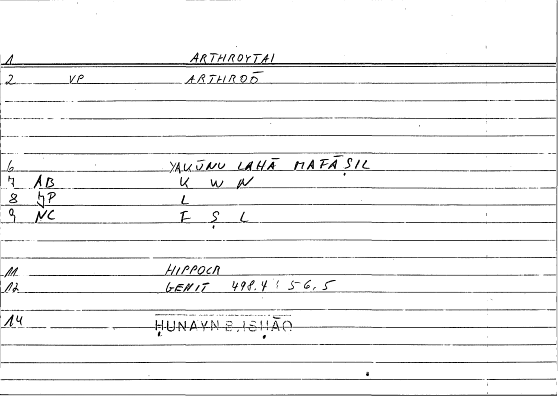 1 ARTHROYTAI
2 VP ARTHROŌ
6 YAKŪNU LAHĀ MAFĀṢIL
7 AB K W N
8 L
9 NC F Ṣ L
11 HIPPOCR
12 GENIT 498.4 : 56.5
14 ḤUNAYN B. ISḤĀQ